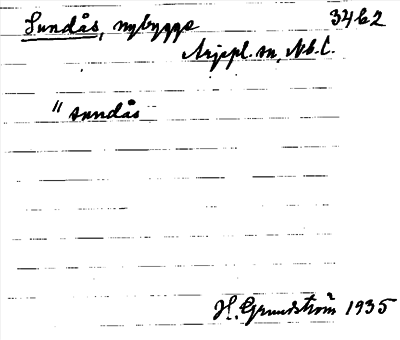 Sundås, nybygge 3462
Arjepl. sn, Nb. l.
" sundås
H. Grundström 1935